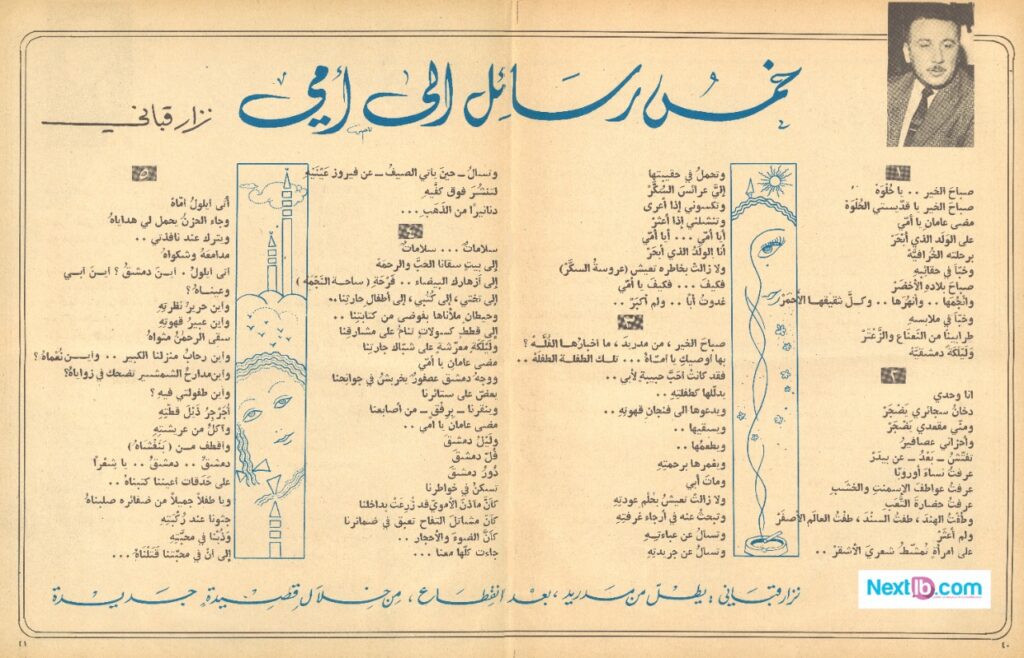 خمس رسائل الى أمي
نزار قباني
١
صباحَ الخير .. يا حُلْوَهْ
صباحَ الخير يا قدّيستي الحُلْوَهْ
مضى عامانِ يا أمّي
على الوَلَد الذي أبْحَرْ
برحلته الخُرافيَّهْ
وخبّأ في حقائبهِ
صباحَ بلادهِ الأخضَرْ
وأنجُمَها .. وأنهُرَها .. وكلَّ شقيقها الأحمَرْ
وخبّأ في ملابسهِ
طرابيناً من النَعناع والزَعْتَرْ
وليلكةً دمشقيَّهْ
٢
انا وحدي
دخانُ سجائري يَضْجَرْ
ومنّي مقعدي يَضْجَرْ
وأحزاني عصافيرٌ
تفتّشُ – بَعْدُ – عن بيدَرْ
عرفتُ نساءَ أوروبّا
عرفتُ عواطفَ الإسمنتِ والخشبِ
عرفتُ حضارةَ التَعَبِ
وطُفتُ الهندَ ، طفتُ السندَ ، طفتُ العالم الأصفَرْ
ولم أعثَرْ
على امرأةٍ تُمشّطُ شعريَ الأشقرْ ..
وتحملُ في حقيبتها
إليَّ عرائسَ السُكَّرْ
وتكسوني إذا أعرى
وتنشلني إذا أعثَرْ
أيا أمّي ... أيا أمّي
أنا الولدُ الذي أبحَرْ
ولا زالتْ بخاطره تعيش (عروسةُ السكَّرْ)
فكيفَ ... فكيف يا أمّي
غدوتُ أباً .. ولم أكبَرْ ..
٣
صباحَ الخير ، من مدريدَ ، ما أخبارُها الفُلَّهْ ؟
بها أوصيكِ يا امّاهُ ... تلك الطفلةَ الطفلهْ ..
فقد كانتْ أحَبَّ حبيبةٍ لأبي ..
يدلّلها كطفلتِهِ ..
ويدعوها الى فنجان قهوتِهِ ..
ويسقيها ..
ويطعمُها ..
ويغمرها برحمتِهِ
وماتَ أبي
ولا زالتْ تعيشُ بحُلْم عودتِهِ
وتبحثُ عنه في أرجاء غرفتِهِ
وتسألُ عن عباءتِهِ
وتسألُ عن جريدتِهِ
وتسألُ – حينَ يأتي الصيفُ – عن فيروز عَيْنَيْهِ
لتنثُرَ فوق كفَّيْهِ
دنانيراً من الذَهَبِ ...
٤
سلاماتٌ ... سلاماتٌ
إلى بيتٍ سقانا الحبَّ والرحمَهْ
إلى أزهاركِ البيضاء .. فَرْحَةِ ( ساحة النَّجْمَهْ )
إلى تختي ، إلى كُتُبي ، إلى أطفال حارتِنا ..
وحيطانٍ ملأناها بفوضى من كتابتِنا ..
إلى قططٍ كسولاتٍ تنامُ على مشارقِنا
وليلكةٍ معرّشةٍ على شبّاك جارتِنا
مضى عامانِ يا أمّي
ووجهُ دمشقَ عصفورٌ يخربشُ في جوانحِنا
يعضّ على ستائرنا
وينقرنا – برفْقٍ – من أصابعنا
مضى عامانِ يا أمّي ..
وليلُ دمشقَ
فُلُّ دمشقَ
دُورُ دمشقَ
تسكنُ في خواطرنا
كأنَّ مآذنَ الأمويّ قد زُرعَتْ بداخلنا
كأنَّ مشاتلَ التفاح تعبقُ في ضمائرنا
كأنَّ الضوءَ والأحجار ..
جاءت كلّها معنا ...
٥
أتى أيلولُ امّاهُ
وجاء الحزنُ يحمل لي هداياهُ
ويترك عند نافذتي ..
مدامعَهُ وشكواهُ
أتى أيلولُ . اينَ دمشقُ ؟ اينَ ابي
وعيناهُ ؟
واينَ حريرُ نظرتِهِ
واينَ عبيرُ قهوتِهِ
سقى الرحمنُ مثواهُ
واينَ رحابُ منزلنا الكبير .. وايــن نُعْماهُ ؟
واينَ مدارجُ الشمشيرِ تضحكُ في زواياهُ؟
واين طفولتي فيهِ ؟
أجَرْجِرُ ذَيْلَ قطّتِهِ
وآكلُ من عريشتِهِ
وأقطفُ مـن ( بَنَفْشَاهُ )
دمشقُ .. دمشقُ .. يا شعْراً
على حَدَقات أعيننا كتبناهُ ..
ويا طفلاً جميلاً من ضفائره صلبناهُ
جثونا عند رُكْبَتِهِ
وذُبْنا في محبَّتِهِ
إلى انْ في محبَّتنا قَتَلْنَاهُ ...
نزار قباني : يطلّ من مدريد ، بعد انقطاع ، من خلال قصيدةٍ جديدة
٤١
٤٠
Nextlb.com